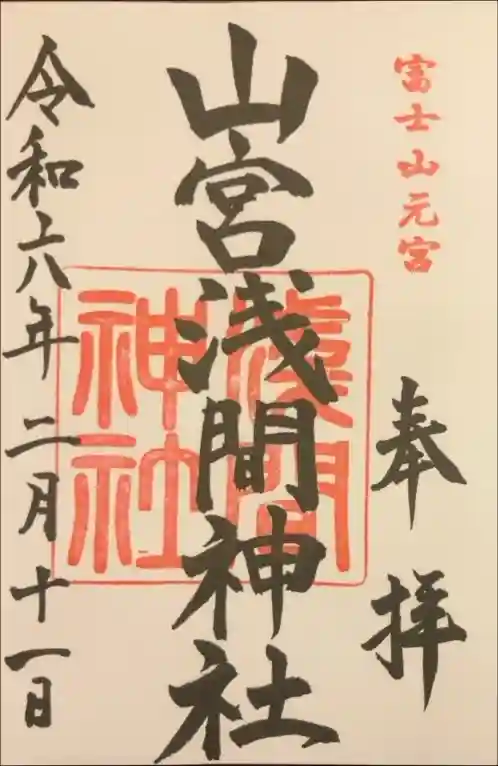 富士山元宮
奉拝
山宮浅間神社
淺間
神社
令和六年二月十一日